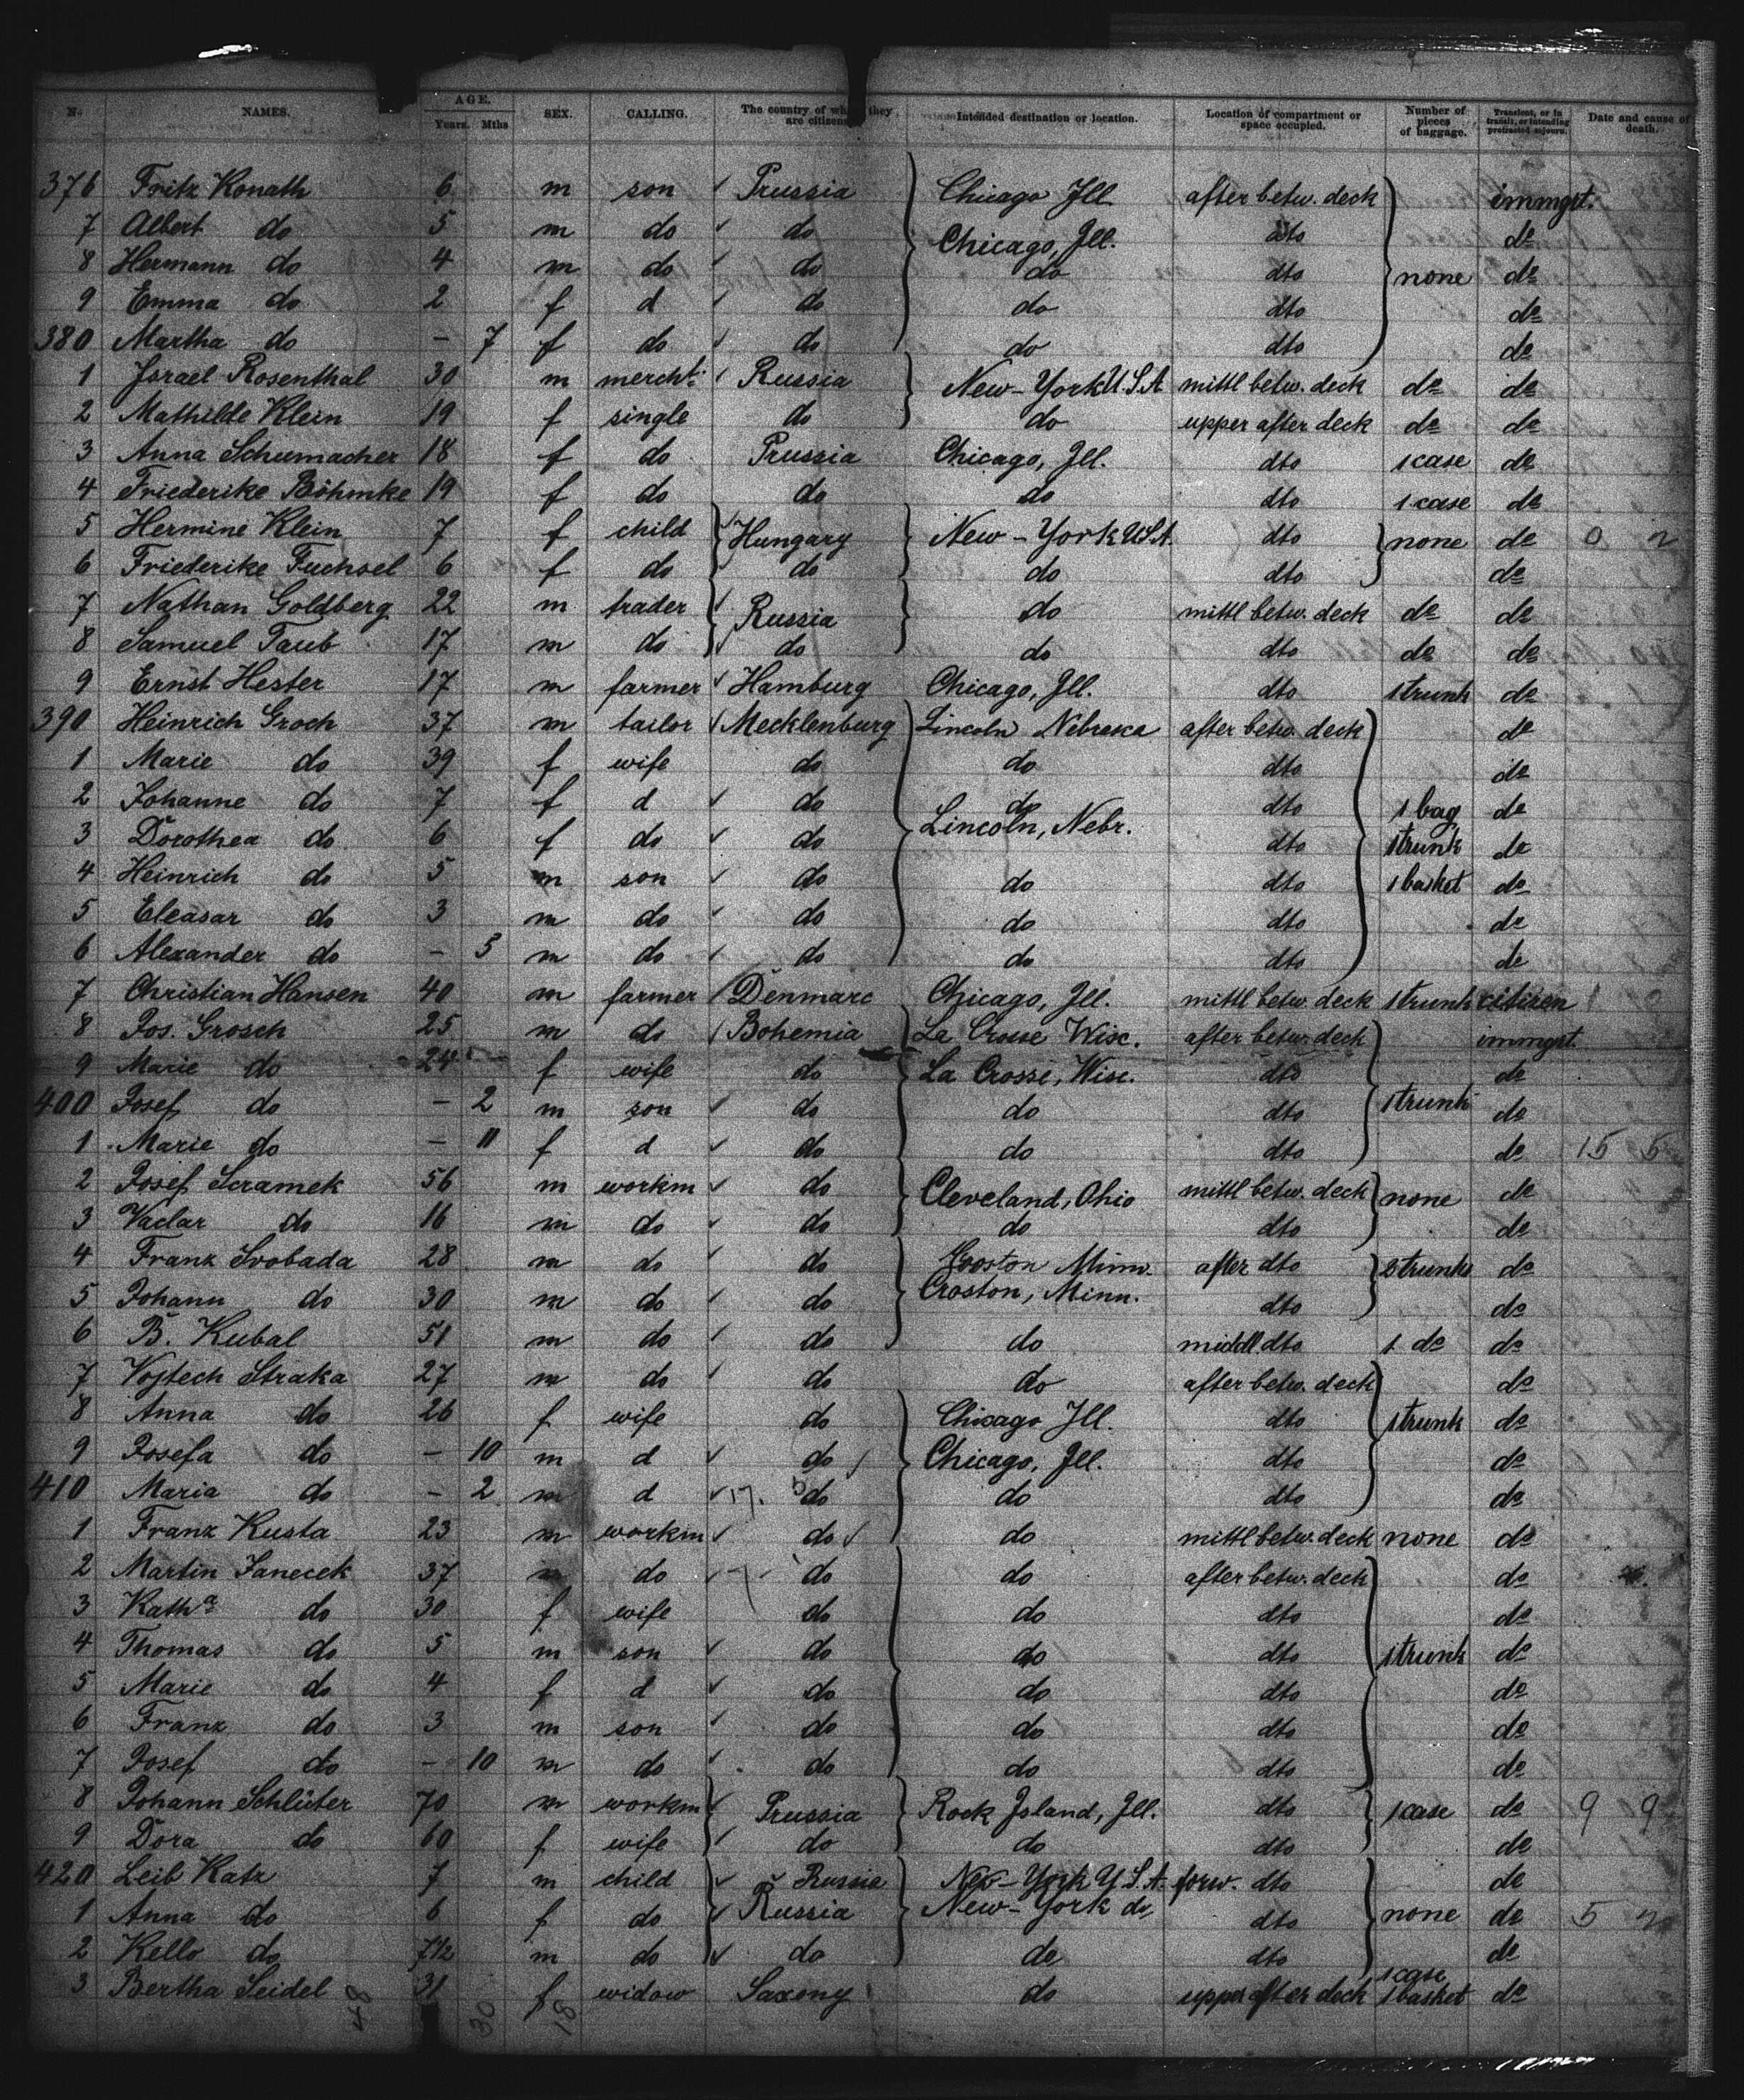 No. NAMES. AGE. Years. Mths SEX. CALLING. The country of they are citizens Intended destination or location. Location of compartment or space occupied. Number of pieces of baggage. Transient, or in transit, or intending protracted sojourn. Date and cause of death.
376 Fritz Konath 6 m son Prussia Chicago Ill after betw. deck immgrt.
7 Albert do 5 m do do Chicago, Ill. dto do
8 Hermann do 4 m do do do dto none do
9 Emma do 2 f d do do dto do
380 Martha do – 7 f do do do dto do
1 Israel Rosenthal 30 m mercht. Russia New-York U.S.A mittl betw. deck do do
2 Mathilde Klein 19 f single do do upper after deck do do
3 Anna Schumacher 18 f do Prussia Chicago, Ill. dto 1 case do
4 Friederike Böhmke 19 f do do do dto 1 case do
5 Hermine Klein 7 f child Hungary New-York U.S.A. dto none do 0 2
6 Friederike Fuchsel 6 f do do do dto do
7 Nathan Goldberg 22 m trader Russia do mittl betw. deck do do
8 Samuel Taub 17 m do do do dto do do
9 Ernst Hester 17 m farmer Hamburg Chicago, Ill. dto 1 trunk do
390 Heinrich Groch 37 m tailor Mecklenburg Lincoln Nebraska after betw. deck do
1 Marie do 39 f wife do do dto do
2 Johanne do 7 f d do do dto 1 bag do
3 Dorothea do 6 f do do Lincoln, Nebr. dto 1 trunk do
4 Heinrich do 5 m son do do dto 1 basket do
5 Eleasar do 3 m do do do dto do
6 Alexander do – 5 m do do do dto do
7 Christian Hansen 40 m farmer Denmarc Chicago, Ill. mittl betw. deck 1 trunk citizen
8 Jos. Grosch 25 m do Bohemia La Crosse Wisc. after betw. deck immgrt.
9 Marie do 24 f wife do La Crosse, Wisc. dto do
400 Josef do – 2 m son do do dto 1 trunk do
1 Marie do – 11 f d do do dto do 15 5
2 Josef Scramek 56 m workm do Cleveland, Ohio mittl betw. deck none do
3 Vaclar do 16 m do do do dto do
4 Franz Svobada 28 m do do Croston Minn. after dto 2 trunks do
5 Johann do 30 m do do Croston, Minn. dto do
6 B. Kubal 51 m do do do middl. dto 1 do do
7 Vojtech Straka 27 m do do do after betw. deck do
8 Anna do 26 f wife do Chicago Ill. dto 1 trunk do
9 Josefa do – 10 m d do Chicago, Ill. dto do
410 Maria do – 2 m d do do dto do
1 Franz Kusta 23 m workm do do mittl betw. deck none do
2 Martin Janecek 37 m do do do after betw. deck do
3 Katha do 30 f wife do do dto do
4 Thomas do 5 m son do do dto 1 trunk do
5 Marie do 4 f d do do dto do
6 Franz do 3 m son do do dto do
7 Josef do – 10 m do do do dto do
8 Johann Schlüter 70 m workm Prussia Rock Island, Ill. dto 1 case do 9 9
9 Dora do 60 f wife do do dto do
420 Leib Katz 7 m child Russia New-York U.S.A. forw. dto do
1 Anna do 6 f do Russia New-York do dto none do 5 2
2 Kello do 7 1/2 m do do do dto do
3 Bertha Seidel 31 f widow Saxony do upper after deck 1 case 1 basket do
48 30 18